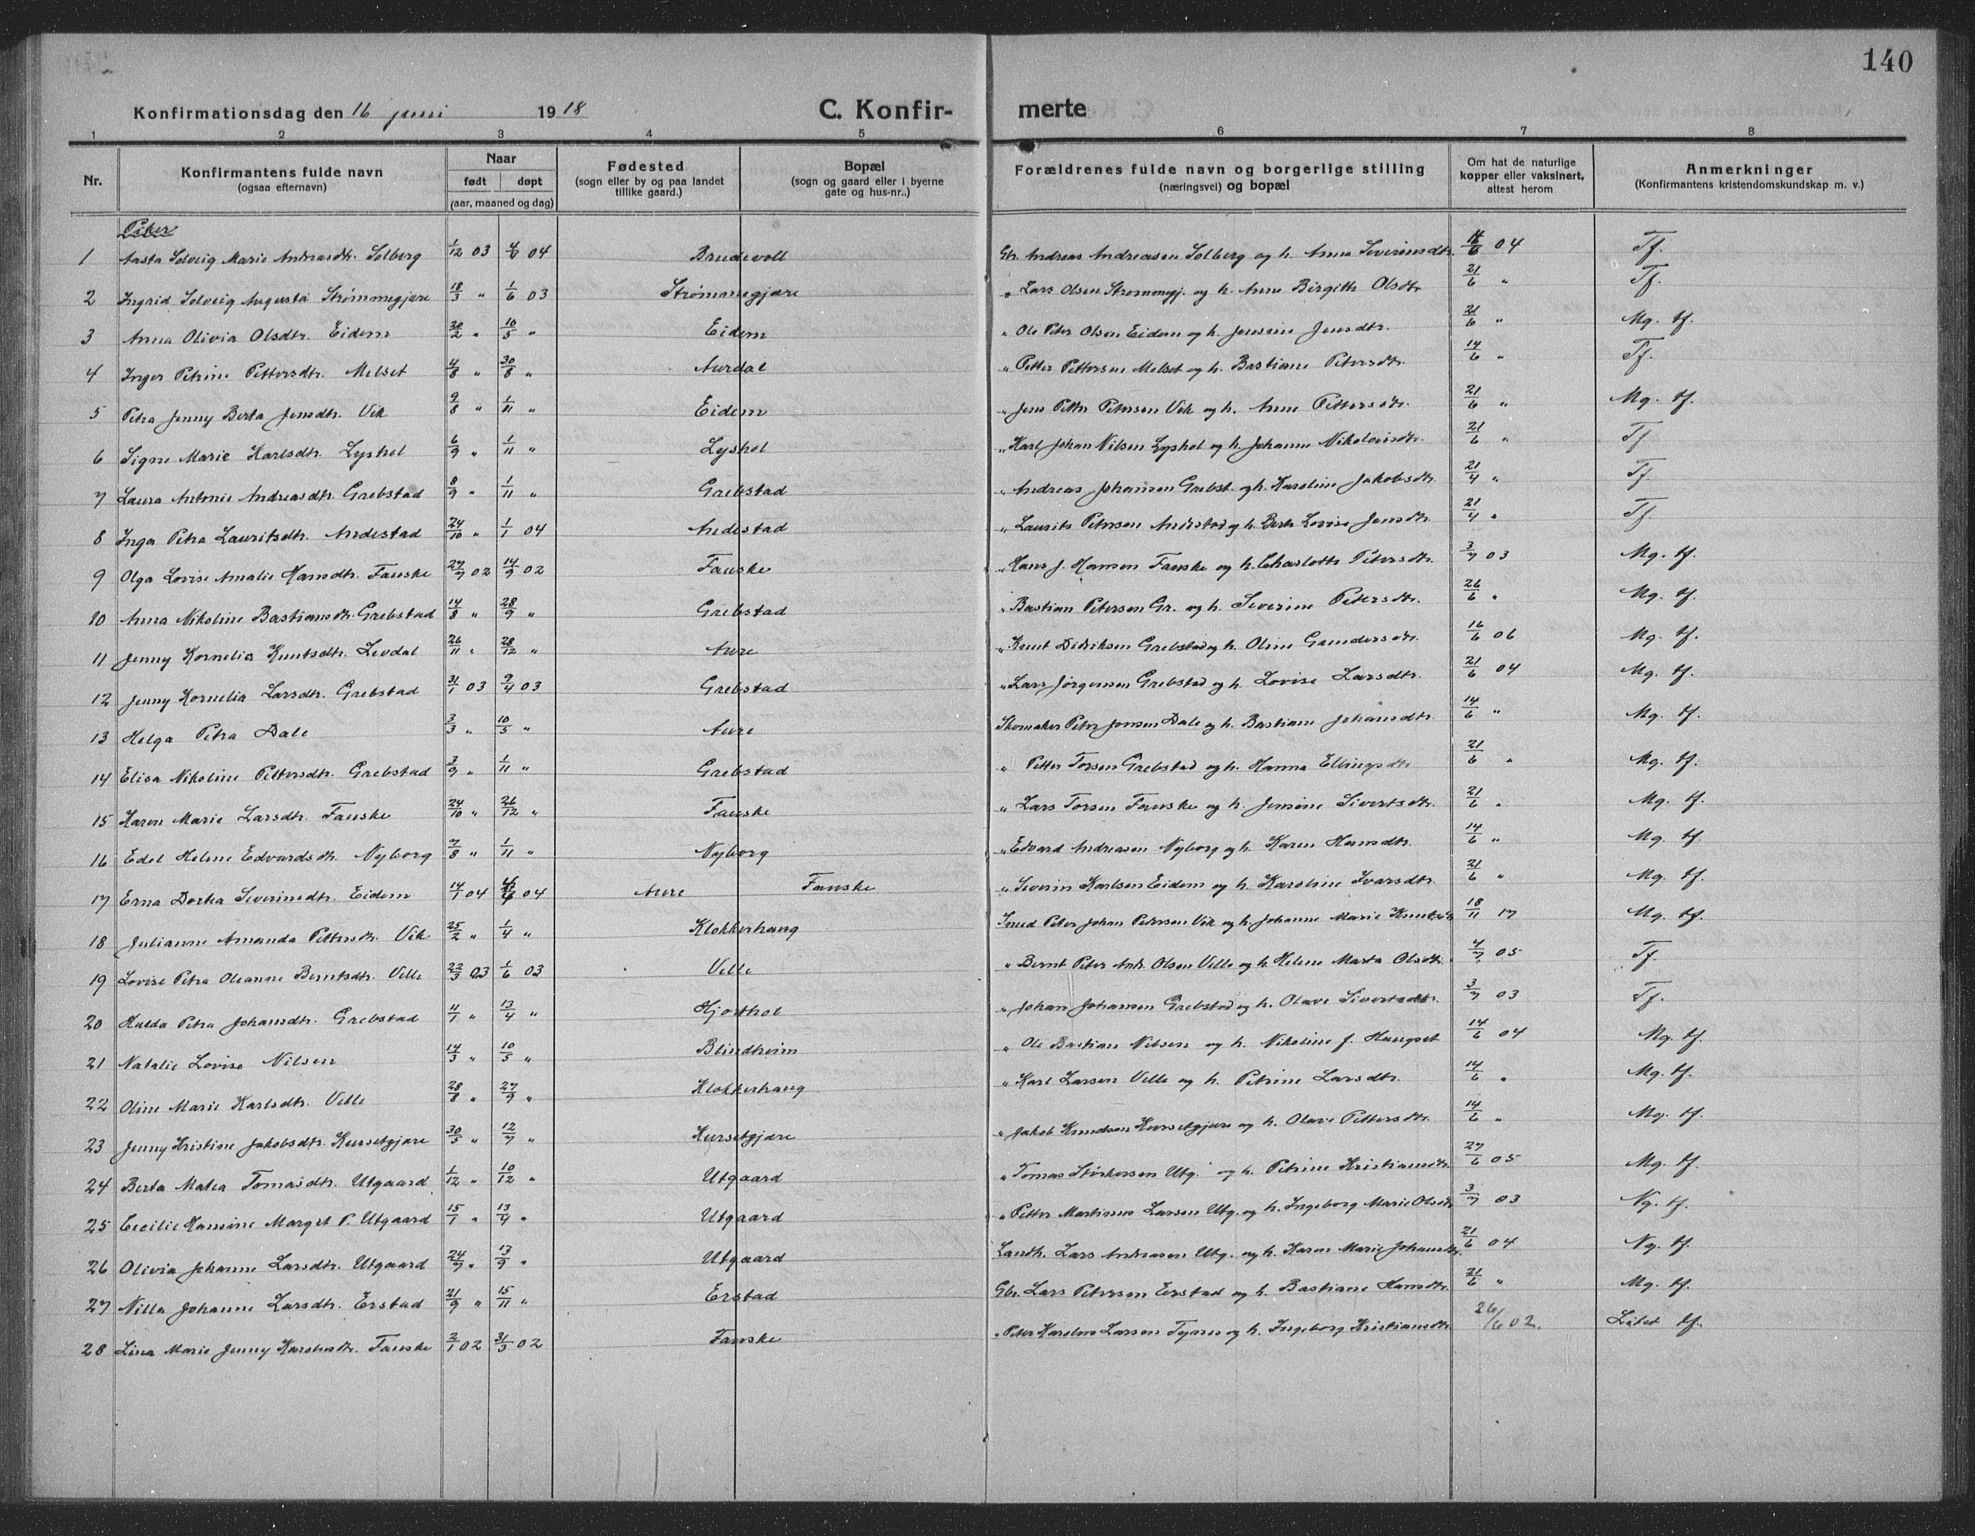 140
Konfirmationsdag den 16 juni 1918 C. Konfirmerte
1 2 3 4 5 6 7 8
Nr. Konfirmantens fulde navn (ogsaa efternavn) Naar født døpt (aar, maaned og dag) Fødested (sogn eller by og paa landet tillike gaard.) Bopæl (sogn og gaard eller i byerne gate og hus-nr..) Forældrenes fulde navn og borgerlige stilling (næringsvei) og bopæl Om hat de naturlige kopper eller vaksinert, attest herom Anmerkninger (Konfirmantens kristendomskundskap m. v.)
Piker
1 Aasta Solveig Marie Andreasdtr. Solberg 1/12 03 04 Brudevoll Gbr. Andreas Andreasen Solberg og h. Anna Severinsdtr. 14/6 04 Tf.
2 Ingrid Solveig Augusta Strømmegjære 18/3 " 1/6 03 Strømmegjære " Lars Olsen Strømmegj. og h. Anne Birgitte Olsdtr. 21/6 " Tf.
3 Anna Olivia Olsdtr. Eidem 20/2 " 10/5 " Eidem " Ole Peter Olsen Eidem og h. Jensine Jensdtr. 21/6 " Mg. tf.
4 Inger Petrine Pettersdtr. Melset 4/8 " 30/8 " Aurdal " Petter Pettersen Melset og h. Bastiane Petersdtr. 14/6 " Tf.
5 Petra Jenny Berta Jensdtr. Vik 9/8 " 1/11 " Eidem " Jens Petter Petersen Vik og h. Anne Pettersdtr. 21/6 " Mg. tf.
6 Signe Marie Karlsdtr. Lyshol 6/9 " 1/11 " Lyshol " Karl Johan Nilsen Lyshol og h. Johanne Nikolaisdtr. 21/6 " Tf.
7 Laura Antonie Andreasdtr. Grebstad 8/9 " 1/11 " Grebstad " Andreas Johansen Grebst. og h. Karoline Jakobsdtr. 21/4 " Tf.
8 Inga Petra Lauritsdtr. Andestad 24/10 " 1/1 04 Andestad " Laurits Petersen Andestad og h. Berte Lovise Jensdtr. 21/4 " Tf.
9 Olga Lovise Amalie Hansdtr. Fauske 27/7 02 14/9 02 Fauske " Hans J. Hansen Fauske og h. Charlotte Petersdtr. 3/7 03 Mg. tf.
10 Anna Nikoline Bastiansdtr. Grebstad 14/8 " 28/9 " Grebstad " Bastian Petersen Gr. og h. Severine Petersdtr. 26/6 " Mg. tf.
11 Jenny Kornelia Knutsdtr. Levdal 26/11 " 28/12 " Aure " Knut Didriksen Grebstad og h. Oline Gundersdtr. 16/6 06 Mg. tf.
12 Jenny Kornelia Larsdtr. Grebstad 31/1 03 9/4 03 Grebstad " Lars Jørgensen Grebstad og h. Lovise Larsdtr. 21/6 04 Mg. tf.
13 Helga Petra Dale 3/3 " 10/5 " Aure Skomaker Peter Jensen Dale og h. Bastiane Johansdtr. 14/6 " Mg. tf.
14 Elisa Nikoline Pettersdtr. Grebstad 3/9 " 1/11 " Grebstad " Petter Torsen Grebstad og h. Hanna Ellingsdtr. 21/6 " Mg. tf.
15 Karen Marie Larsdtr. Fauske 24/10 " 26/12 " Fauske " Lars Torsen Fauske og h. Jensine Sivertsdtr. 21/6 " Mg. tf.
16 Edel Helene Edvardsdtr. Nyborg 7/8 " 1/11 " Nyborg " Edvard Andreasen Nyborg og h. Karen Hansdtr. 14/6 " Mg. tf.
17 Erna Dorthea Severinsdtr. Eidem 14/1 04 04 Aure Fauske " Severin Karlsen Eidem og h. Karoline Ivarsdtr. 21/6 " Mg. tf.
18 Julianne Amanda Pettersdtr. Vik 25/2 " 1/4 " Klokkerhaug Smed Peter Johan Petersen Vik og h. Johanne Marie Knutsdtr. 18/11 17 Mg. tf.
19 Lovise Petra Oleanne Berntsdtr. Velle 22/3 03 1/6 03 Velle " Bernt Peter Andr. Olsen Velle og h. Helene Marta Olsdtr. 4/7 05 Tf.
20 Hulda Petra Johansdtr. Grebstad 11/1 " 13/4 " Hjorthol " Johan Johansen Grebstad og h. Olave Sivertsdtr. 3/7 03 Tf.
21 Natalie Lovise Nilsen 14/3 " 10/5 " Blindheim " Ole Bastian Nilsen og h. Nikoline f. Haugset 14/6 04 Mg. tf.
22 Oline Marie Karlsdtr. Velle 28/8 " 27/9 " Klokkerhaug " Karl Larsen Velle og h. Petrine Larsdtr. 14/6 " Mg. tf.
23 Jenny Kristine Jakobsdtr. Kursetgjære 30/5 " 12/7 " Kursetgjære " Jakob Knudsen Kursetgjære og h. Olave Pettersdtr. 14/6 " Mg. tf.
24 Berta Malia Tomasdtr. Utgaard 1/12 " 10/12 " Utgaard " Tomas Størkersen Utg. og h. Petrine Kristiansdtr. 27/6 05 Mg. tf.
25 Cecilie Hansine Marget P. Utgaard 15/7 " 13/9 " Utgaard " Petter Martinus Larsen Utg. og h. Ingeborg Marie Olsdtr. 3/7 03 Ng. tf.
26 Olivia Johanne Larsdtr. Utgaard 24/7 " 13/9 " Utgaard Landh. Lars Andreasen Utg. og h. Karen Marie Johansdtr. 21/6 04 Ng. tf.
27 Nilla Johanne Larsdtr. Erstad 21/9 " 15/11 " Erstad Gbr. Lars Petersen Erstad og h. Bastiane Hansdtr. 21/6 " Mg. tf.
28 Lina Marie Jenny Karolusdtr. Fauske 2/1 02 31/3 02 Fauske " Peter Karolus Larsen Tynes og h. Ingeborg Kristiansdtr. 26/6 02. Litet tf.